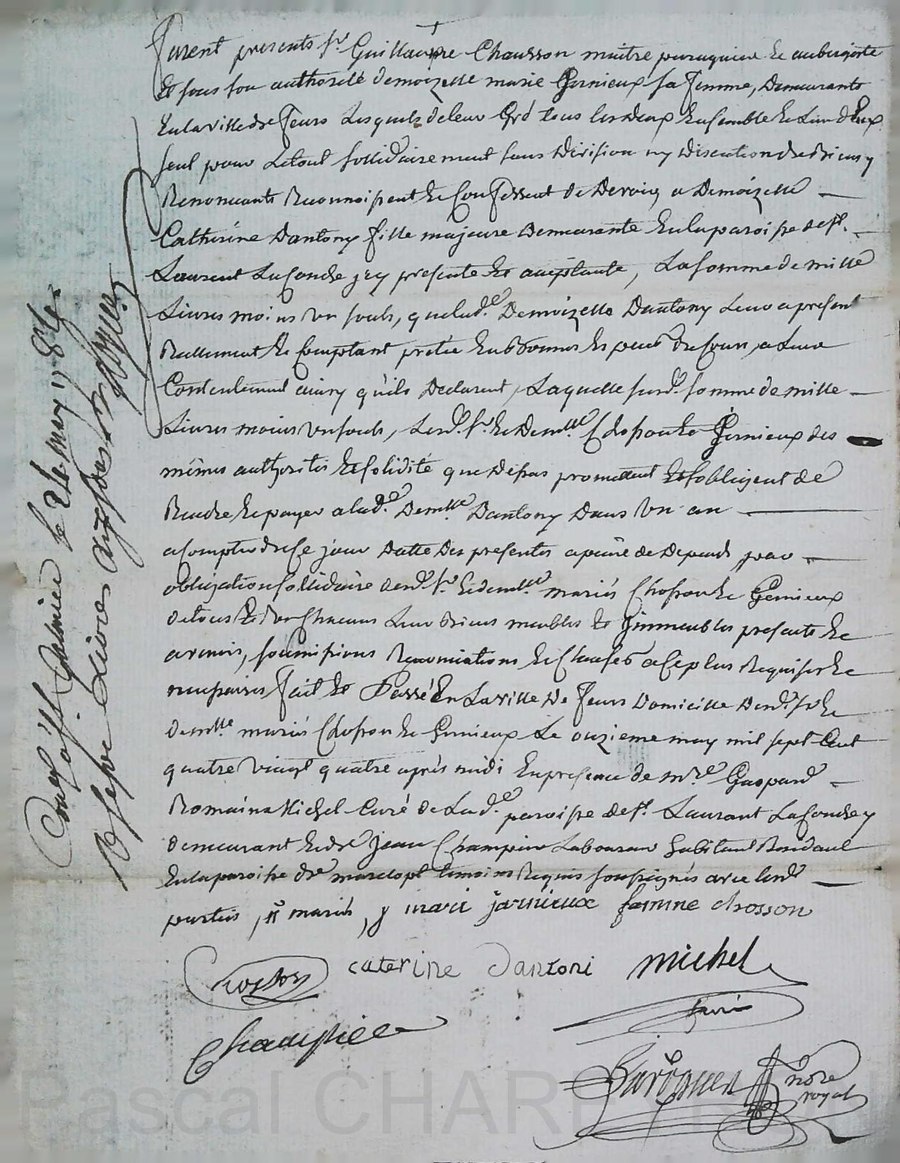 furent presents Sr Guillaume Chausson maitre peruquier et aubergiste
et sous son authorité demoizelle marie Gernieux sa femme, Demeurants
En la ville de feurs Lesquels de leur Gré tous les deux Ensemble et L'un d'Eux
seul pour Le tout sollidairement sans Division ny Discution de Biens y
Renonceants Reconnoissent et Confessent de Devoir a Demoizelle
Catherine Dantony fille majeure Demeurante En la paroisse de St
Laurent La Conche jcy presente et aceptante, La somme de mille
Livres moins un souls, que lad.e Demoizelle Dantony Leur a presentement
Reellement et Comptant pretée En bonnes Especes de Cours, a Leur
Contentement ainsy qu'ils Declarent, Laquelle susd. somme de mille
Livres moins un souls, Lesd. Sr et Demlle Chosson et Gernieux des
mêmes authorités et solidité que dessus promettent et s'obligent de
Rendre et payer a lad.e Demlle Dantony Dans un an
a Compter de Ce jour Datte Des presentes a peine de Depends par
obligation sollidaire desd. Sr et demlle mariés Chosson et Gernieux
de tous et un Chacuns Leurs Biens meubles et jmmeubles presents et
avenirs, soumissions Renonciations et Clauses a Ce plus Requises et
necessaires fait et Passé En La ville De feurs Domicille Desd. Sr et
demlle mariés Chosson et Gernieux Le onzieme may mil sept Cent
quatre vingt quatre après midi En presence de mre Gaspard
Romain Michel Curé de Lad.e paroisse de St Laurent La Conche y
demeurant et de Jean Champier Laboureur habitant Résidant
En la paroisse de marclopt temoins Requis soussignés avec lesd.
parties, mariés, marie jarnieux famme chosson
Chosson caterine Dantoni michel
curé
Champier
nore
royal
Con.lé à le 24 may 1784